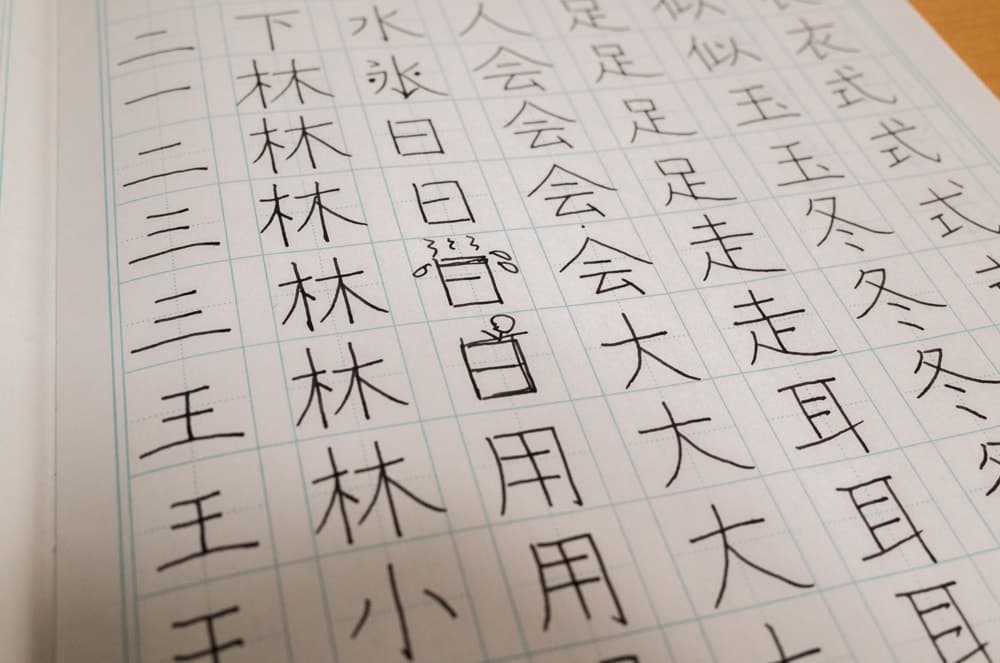 二一二三三王王王
下林林林林林林小
水氷日日日日用用
人会会会会大大大
足足足足走走耳耳耳
似似玉玉冬冬冬
衣式式式